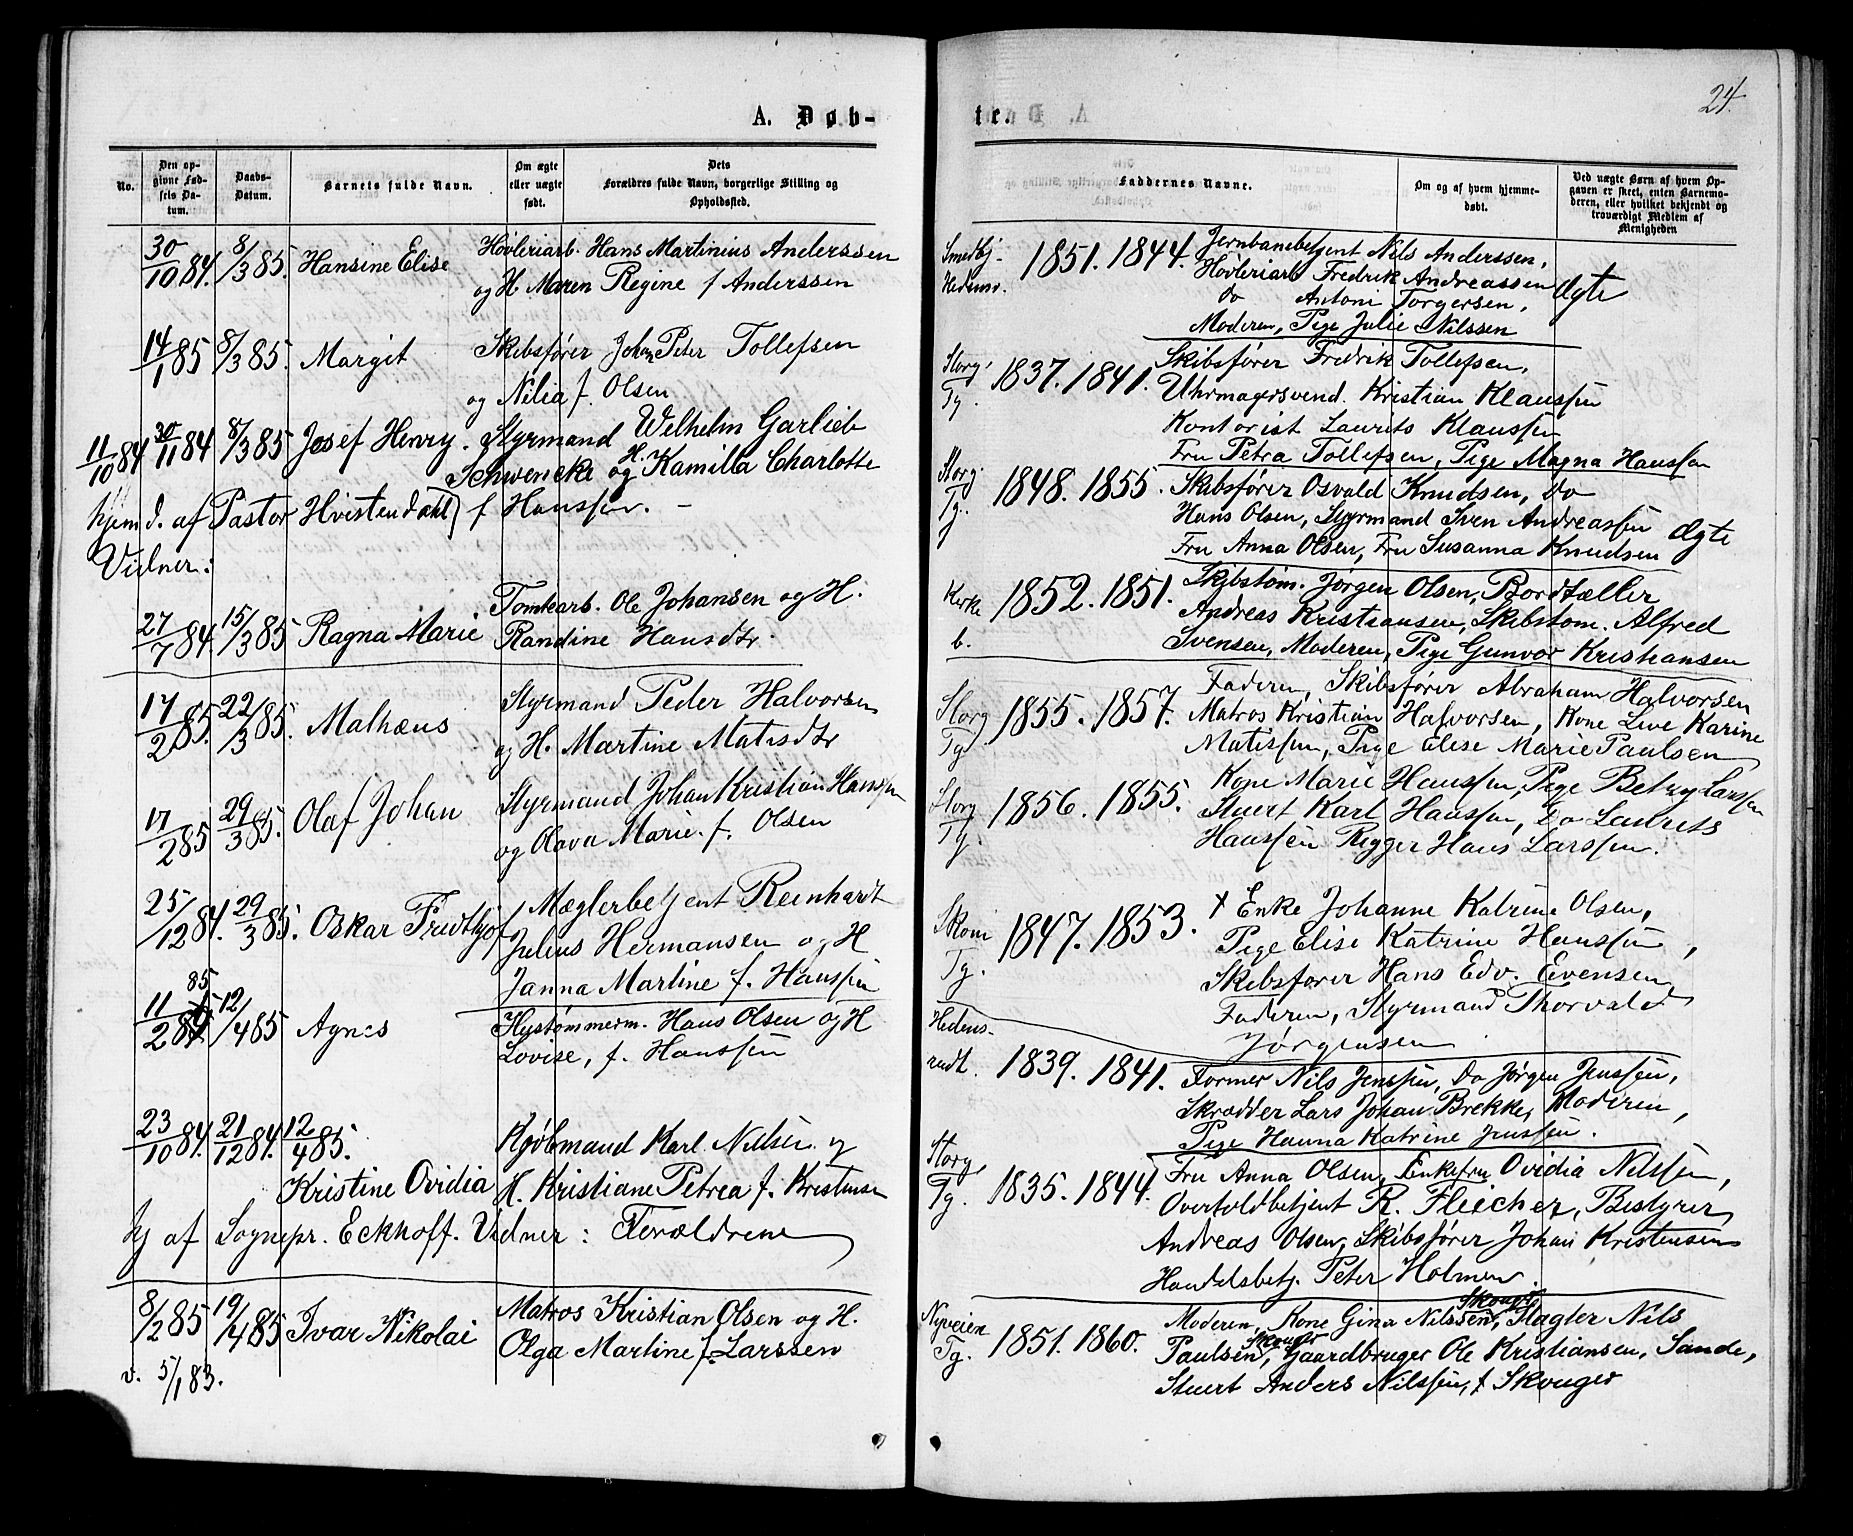 A. Døb-
No.
Den op-
givne Fød-
sels Da-
tum.
Daabs-
Datum.
Barnets fulde Navn.
Om ægte
eller uægte
født.
Dets
Forældres fulde Navn, borgerlige Stilling og
Opholdssted.
30/10 84. 8/3 85. Hansine Elise Høvleriarb. Hans Martinius Anderssen
og H. Maren Regine f Anderssen
14/1 85 8/3 85. Margit Skibsfører Johan Peter Tollefsen
og Nilia f. Olsen
11/10 84 30/11 84 8/3 85 Josef Henry. Styrmand Wilhelm Garlieb
Schwencke og H. Kamilla Charlotte
hjemd. af Pastor Hvistendahl) f Hanssen. -
Vidner:
27/7 84. 15/3 85 Ragna Marie Tomtearb. Ole Johansen og H.
Randine Hansdtr.
17/2 85. 22/3 85. Mathæus Styrmand Peder Halvorsen
og H. Martine Matisdtr
17/2 85 29/3 85. Olaf Johan Styrmand Johan Kristian Hanssen
og Olava Marie. f. Olsen
25/12 84. 29/3 85. Oskar Fridthjof Mæglerbetjent Reinhardt
Julius Hermansen og H
Janna Martine f. Hanssen
85
11/2 84 12/4 85 Agnes Flystømmerm. Hans Olsen og H
Lovise, f. Hanssen
23/10 84. 21/12 84. 12/4 85. Kjøbmand Karl Nilsen og
Kristine Ovidia H. Kristiane Petrea f. Kristensen
Hj af Sognepr. Eckhoff. Vidner: Forældrene
8/2 85 19/4 85 Ivar Nikolai Matros Kristian Olsen og H.
Olga Martine f. Larssen
v. 5/1 83.
24.
te.
Faddernes Navne.
Om og af hvem hjemme-
døbt.
Ved uægte Børn af hvem Op-
gaven er skeet, enten Barnemo-
deren, eller hvilket bekjendt og
troværdigt Medlem af
Menigheden
1851. 1844. Jernbanebetjent Nils Anderssen,
Høvleriarb Fredrik Andreassen Ægte
do Antoni Torgersen,
Moderen, Pige Julie Nilssen
Storg Tg. 1837. 1841. Skibsfører Fredrik Tollefsen,
Uhrmagersvend. Kristian Klaussen
Kontorist Laurits Klaussen
Fru Petra Tollefsen, Pige Magna Hanssen
Storg. Tg. 1848. 1855. Skibsfører Osvald Knudsen, Do
Hans Olsen, Styrmand Sven Andreassen Ægte
Fru Anna Olsen, Fru Susanna Knudsen
Kirke b. 1852. 1851. Skibstøm. Jørgen Olsen, Bordtæller
Andreas Kristiansen, Skibstøm. Alfred
Svensen, Moderen, Pige Gunvor Kristiansen
Storg Tg 1855. 1857. Faderen, Skibsfører Abraham Halvorsen
Matros Kristian Halvorsen, Kone Live Karine
Matissen, Pige Elise Marie Paulsen
Storg Tg. 1856. 1855. Kone Marie Hanssen, Pige Betzy Larssen
Stuert Karl Hanssen, Do Laurits
Hanssen Rigger Hans Larssen.
Tg. 1847. 1853. + Enke Johanne Katrine Olsen,
Pige Elise Katrine Hanssen,
Skibsfører Hans Edv. Evensen
Faderen, Styrmand Thorvald
Jørgensen
Hedens-
rudt. 1839. 1841. Former Nils Jenssen, Do Jørgen Jenssen,
Skrædder Lars Johan Brekke, Moderen,
Pige Hanna Katrine Jenssen.
Storg. Tg. 1835. 1844. Fru Anna Olsen, Enkefru Ovidia Nilssen,
Overtoldbetjent R. Fleicher, Bestyrer
Andreas Olsen, Skibsfører Johan Kristensen
Handelsbetj. Peter Holmen.
Nyveien Tg. 1851. 1860. Moderen, Kone Gina Nilssen, Skouger Slagter Nils
Paulsen, Skouger Gaardbruger Ole Kristiansen, Sande,
Stuert Anders Nilssen, + Skouger